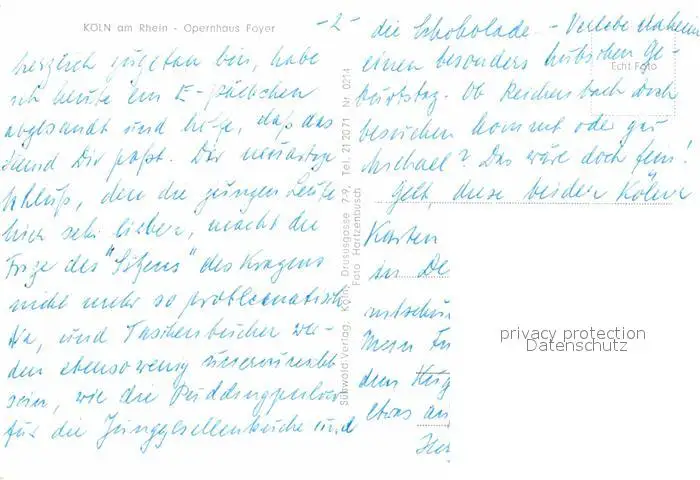 KÖLN am Rhein - Opernhaus Foyer
-2-
herzlich zugetan bin, habe
ich heute ein E-päckchen
abgesandt und hoffe, daß das
Hemd Dir paßt. Der neuartige
Schluß, den die jungen Leute
hier sehr lieben, macht die
Frage des "Sitzens" des Kragens
nicht mehr so problematisch
und Taschentücher wer-
den ebensowenig unerwünscht
sein, wie die Puddingpulver
für die Junggesellenküche und
die Schokolade - Verlebe daheim
einen besonders hübschen Ge-
burtstag. Ob Reichensbach Dich
besuchen kommt oder gar
Michael? Das wäre doch fein!
Gelt, diese beiden Kölner
Karten
in De
entschu
Mein
dem
etwas an
Her
Echt Foto
Südwold-Verlag, Köln, Drususgasse 7-9, Tel. 21 20 71 Nr. 0214
Foto Hartzenbusch
privacy protection
Datenschutz